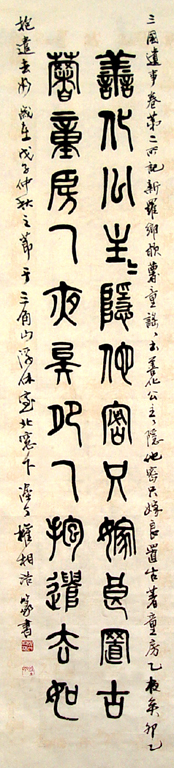 三國遺事卷第二所記新羅鄉歌薯童謠善化公主〻隱他密只嫁良置古薯童房乙夜矣卯乙
善化公主〻隱他密只嫁良置古
薯童房乙夜矣卯乙抱遣去如
抱遣去如歲在戊子仲秋之節于三角山浮休室北窓下塗丁權相浩篆書